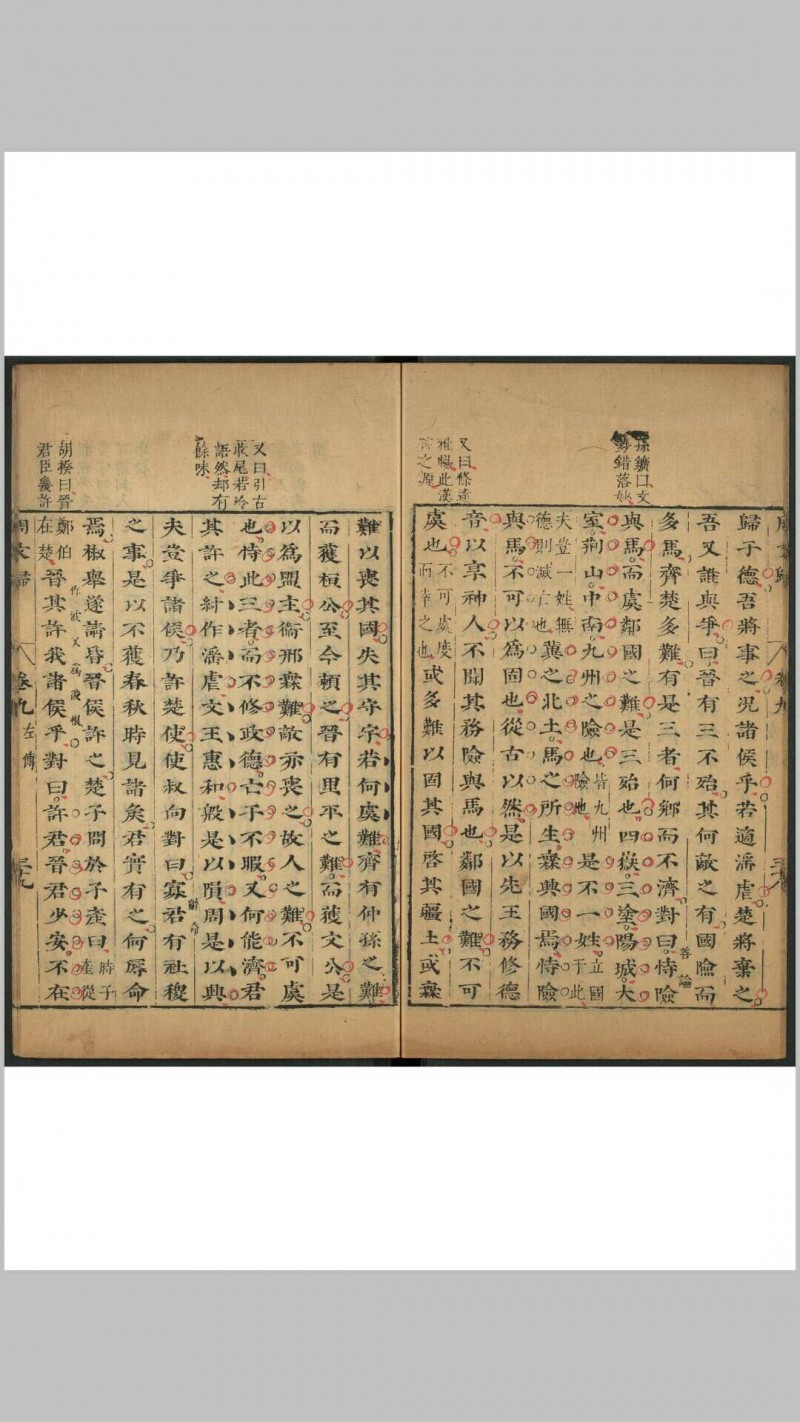 孫鑛曰文
勢錯落妙
又曰條達
雅暢此漢
言之源
周文歸
卷九
歸于德吾將事之況諸侯乎若適淫虐楚將棄之
吾又誰與爭曰晉有三不殆其何敵之有國險而
多馬齊楚多難有是三者何鄉而不濟對曰恃險
善論
與馬而虞鄰國之難是三殆也四嶽三塗陽城大
室荊山中南九州之險也皆九州險地是不一姓立國于此
夫豈一姓無德則滅亡也冀之北土馬之所生無興國焉恃險
與馬不可以為固也從古以然是以先王務修德
音以亨神人不聞其務險與馬也鄰國之難不可
虞也不可虞度而幸之也或多難以固其國啓其疆土或無
又曰引古
收尾若冷
語然却有
餘味
胡揆曰晉
君臣幾許
難以喪其國失其守宇若何虞難齊有仲孫之難
而獲桓公至今賴之晉有里平之難而獲文公是
以為盟主衞邢無難敵亦喪之故人之難不可虞
也恃此三者而不修政德亡于不暇又何能濟君
其許之紂作淫虐文王惠和殷是以隕周是以興
夫豈爭諸侯乃許楚使使叔向對曰寡君有社稷
辭命
之事是以不獲春秋時見諸矦君實有之何辱命
焉椒舉遂請昏晉侯許之楚子問於子產曰時子產從
鄭伯在楚晉其許我諸侯乎對曰許君晉君少安不在
周文歸
卷九
左傳